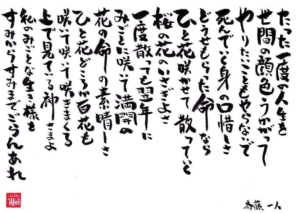 たった一度の人生を
世間の顔色うかがって
やりたいこともやらないで
死んでいく身の口惜しさ
どうせもらった命なら
ひと花咲かせて散っていく
桜の花のいさぎよさ
一度散っても翌年に
みごとに咲いて満開の
花の命の素晴しさ
ひと花どころか百花も
咲いて咲いて咲きまくる
上で見ている神さまよ
私のみごとな生き様を
すみからすみまでごらんあれ
斎藤一人